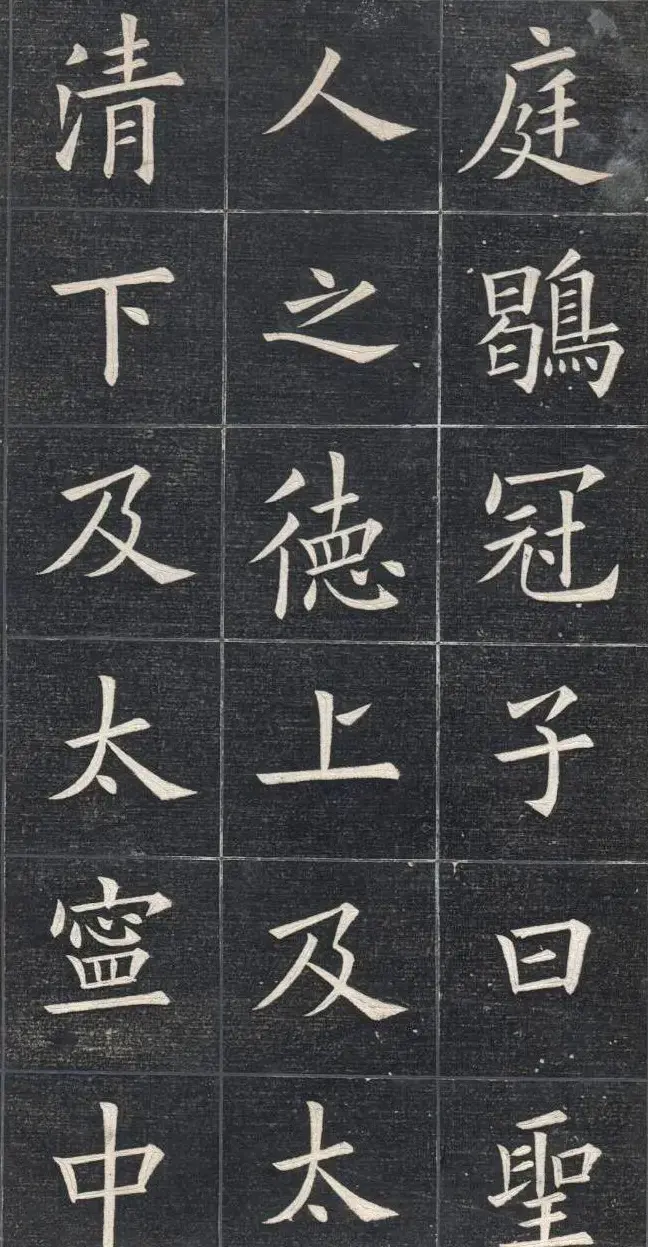 庭鶡冠子曰聖
人之德上及太
清下及太寍中